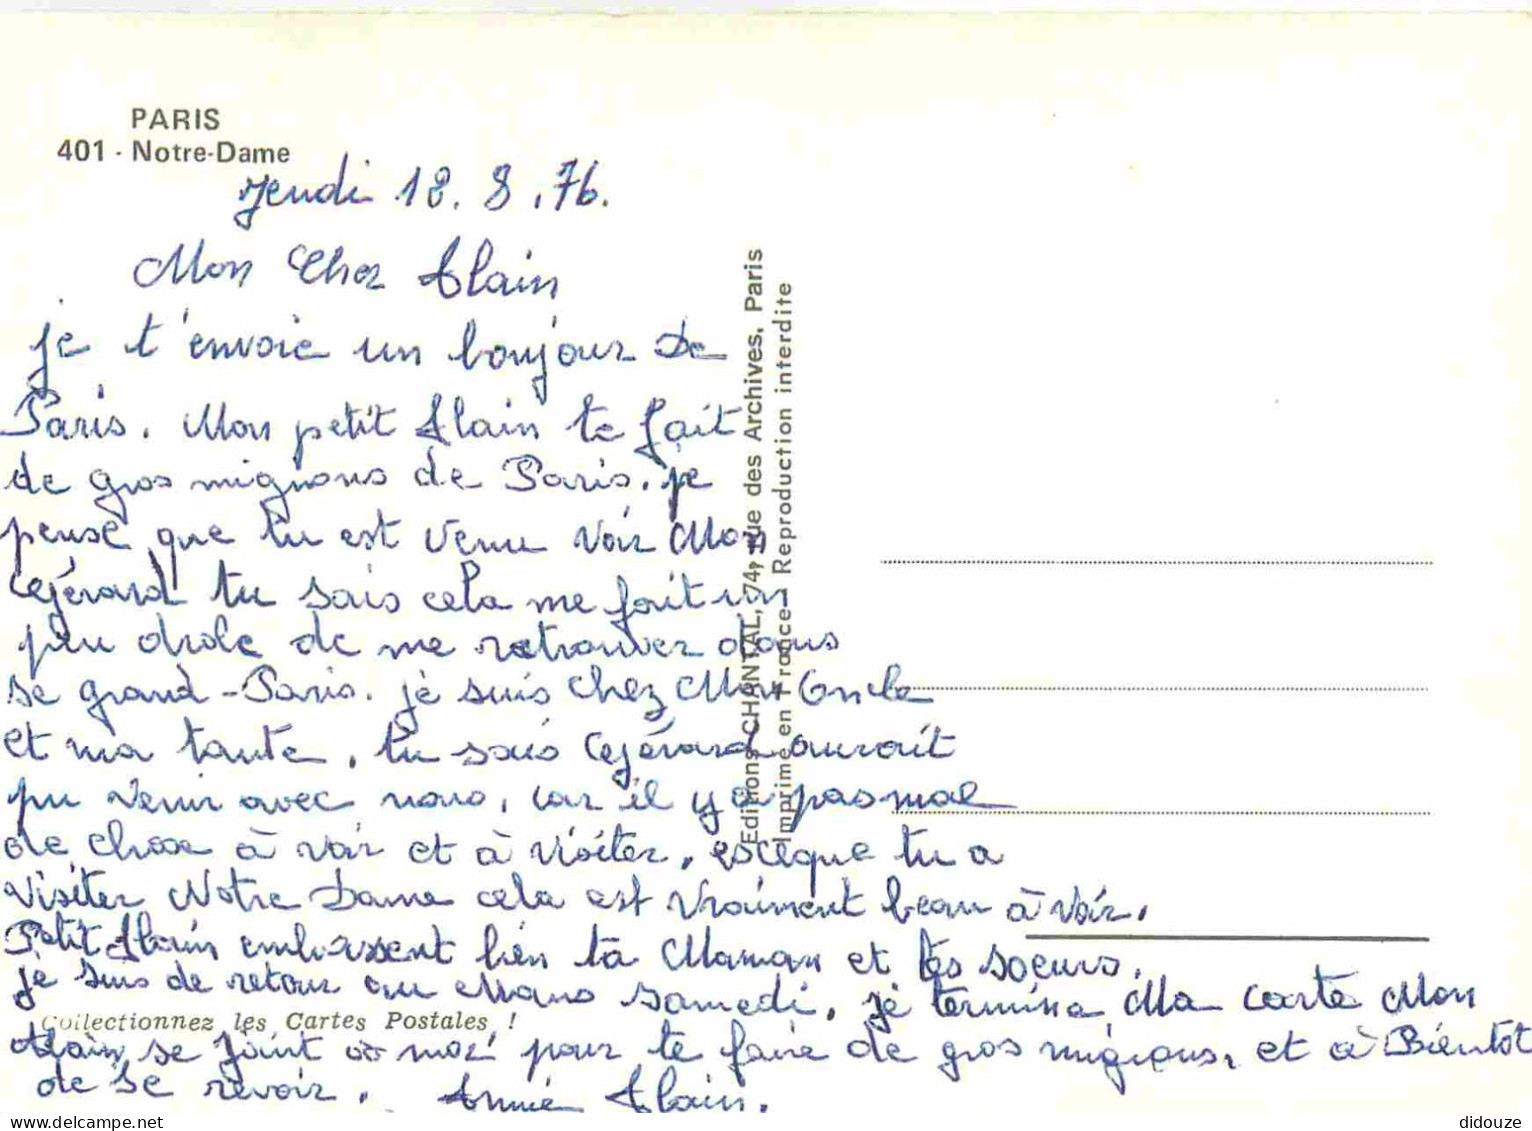 PARIS
401 - Notre-Dame
Jeudi 18. 8. 76.
Mon Cher Alain
je t'envoie un bonjour De
Paris. Mon petit Alain te fait
de gros mignons de Paris. je
pense que tu est venu voir Mon
Gérard tu sais cela me fait un
peu drole de me retrouver dans
se grand-Paris. je suis chez Mon Oncle
et ma tante, tu sais Gérard aurait
pu venir avec nous, car il y a pas mal
de chose à voir et à visiter, esceque tu a
visiter Notre Dame cela est vraiment beau à voir.
Petit Alain embrassent bien ta Maman et tes soeurs.
je suis de retour au Mans samedi. je termine Ma carte Mon
Collectionnez les Cartes Postales !
Alain se joint a moi pour te faire de gros mignons, et à Bientot
de se revoir. Annie Alain.
Editions CHANTAL, 74, rue des Archives, Paris
Imprimé en France - Reproduction interdite
didouze